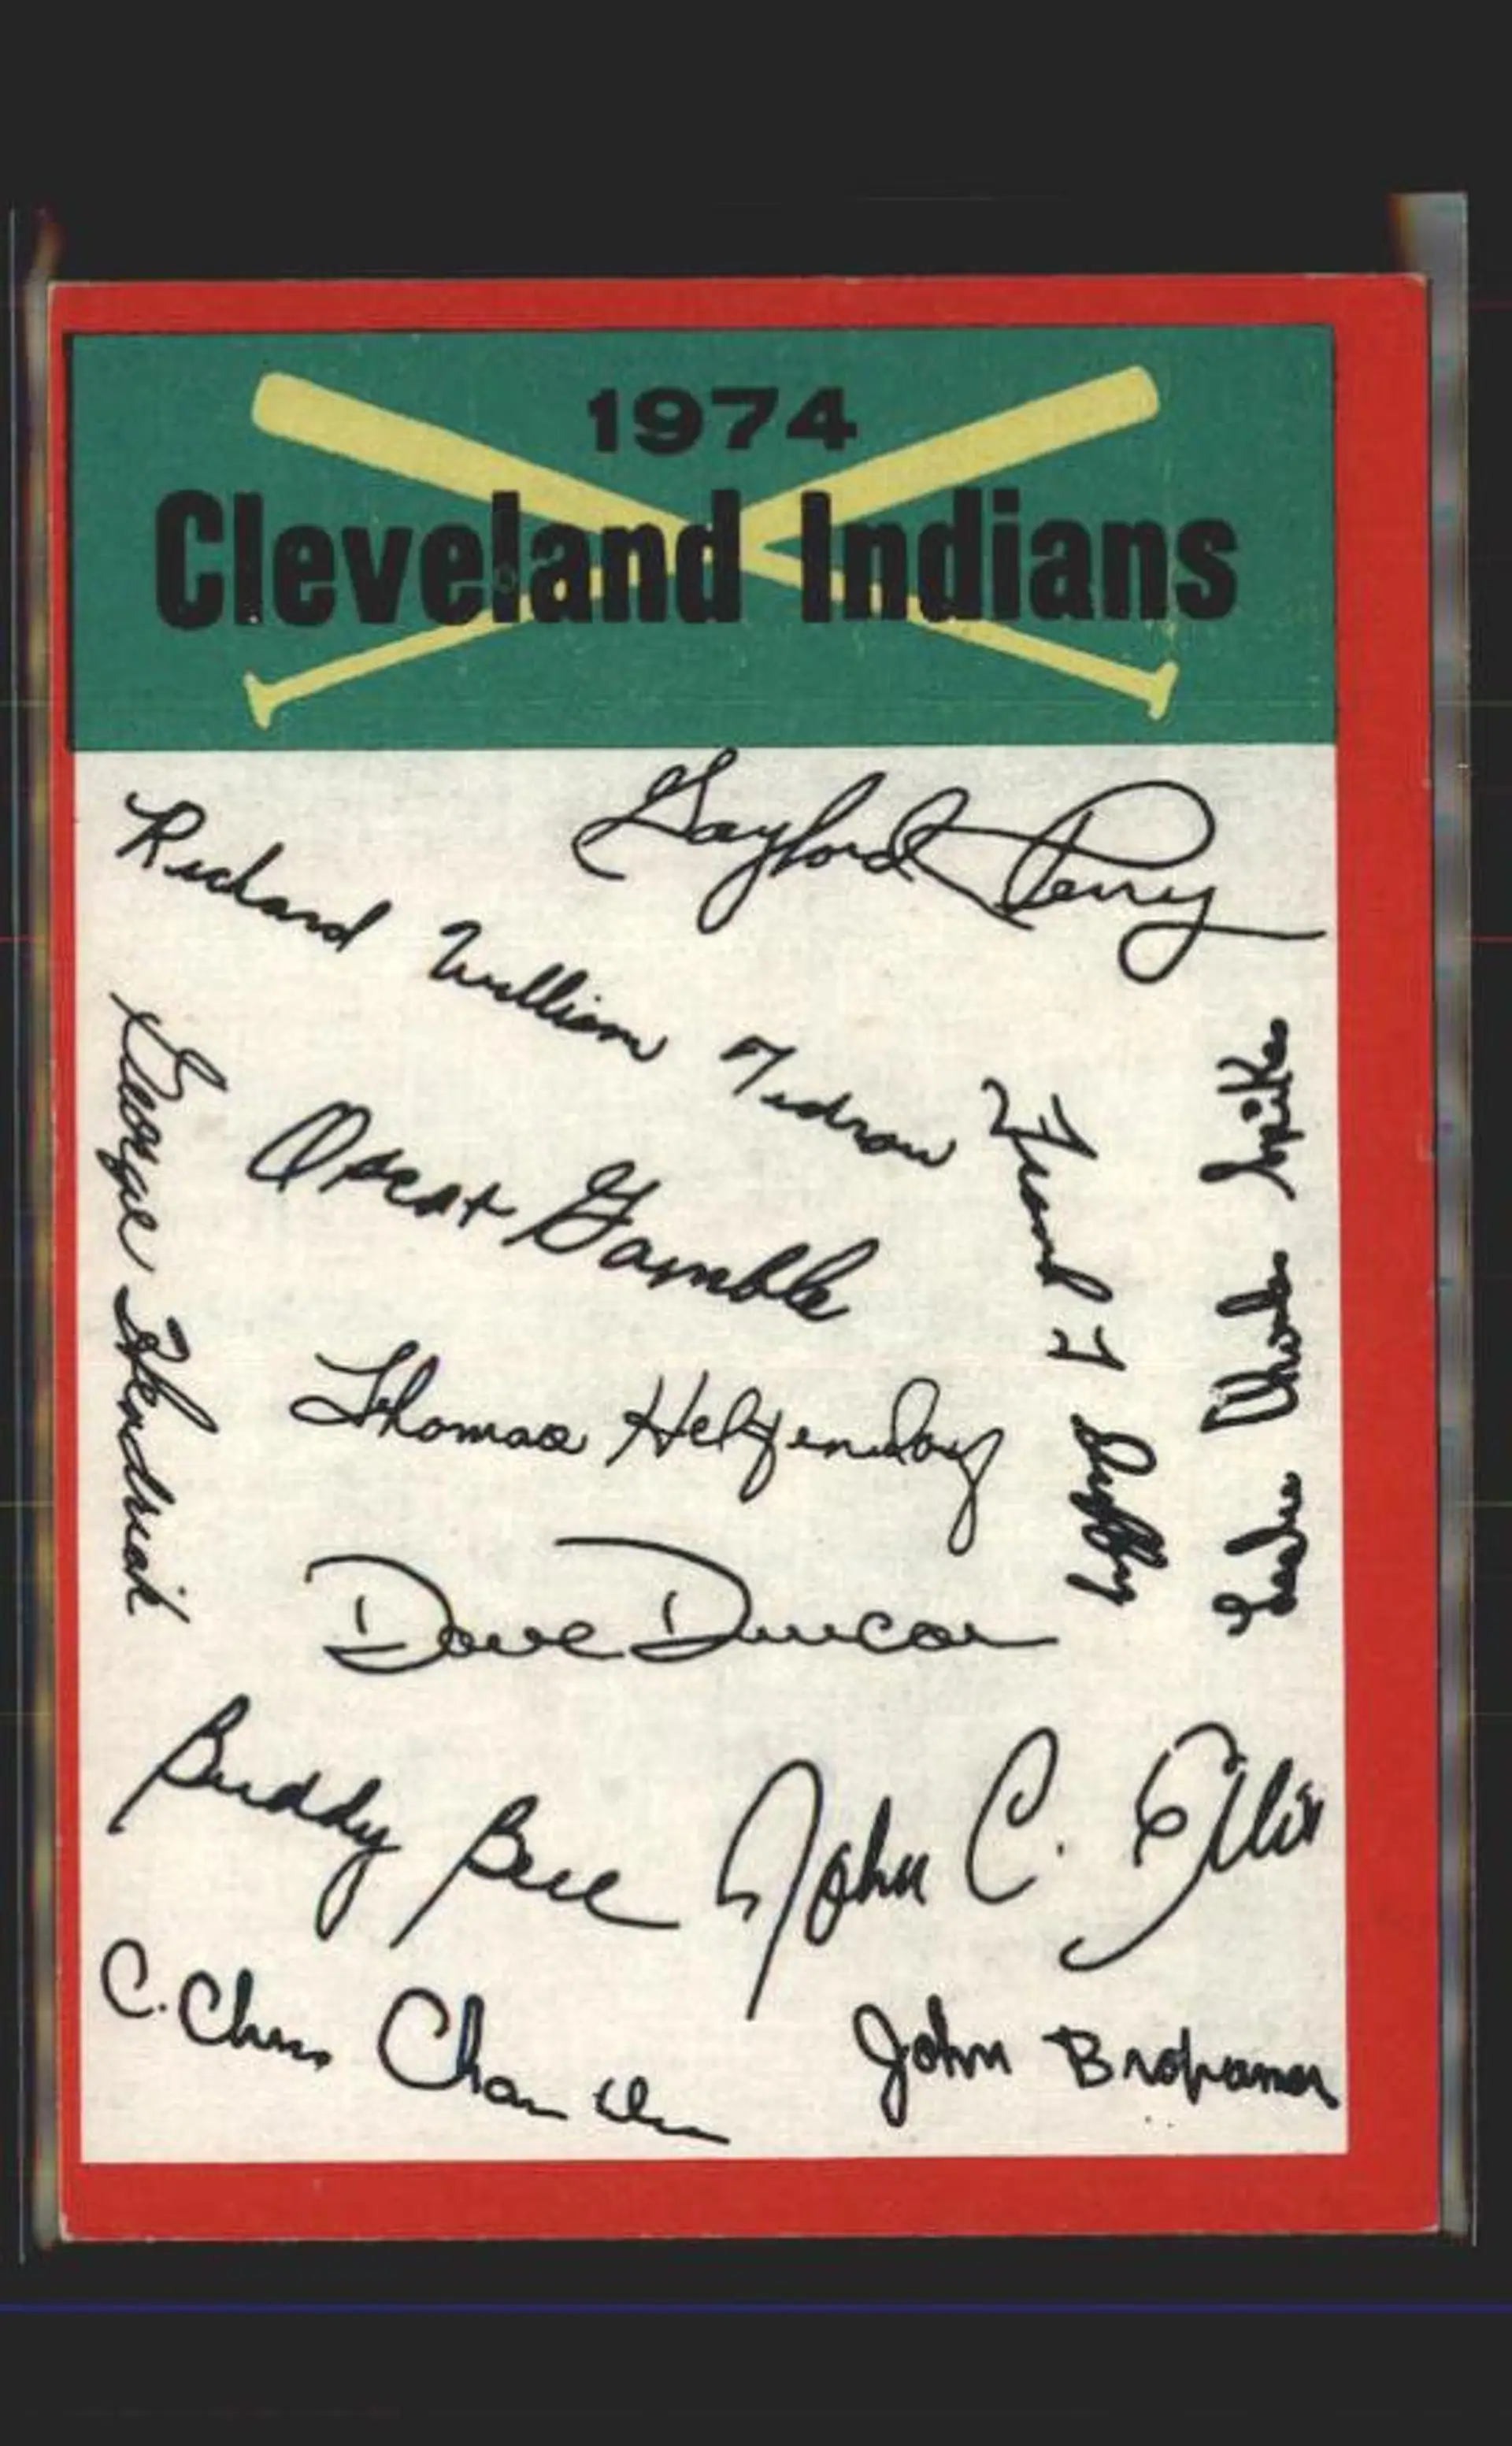 1974
Cleveland Indians
Gaylord Perry
Richard William Tidrow
George Hendrick
Oscar Gamble
Frank J Duffy
Leslie Charles Spikes
Thomas Hilgendorf
Dave Duncan
Buddy Bell
John C. Ellis
C. Chris Chambliss
John Brohamer